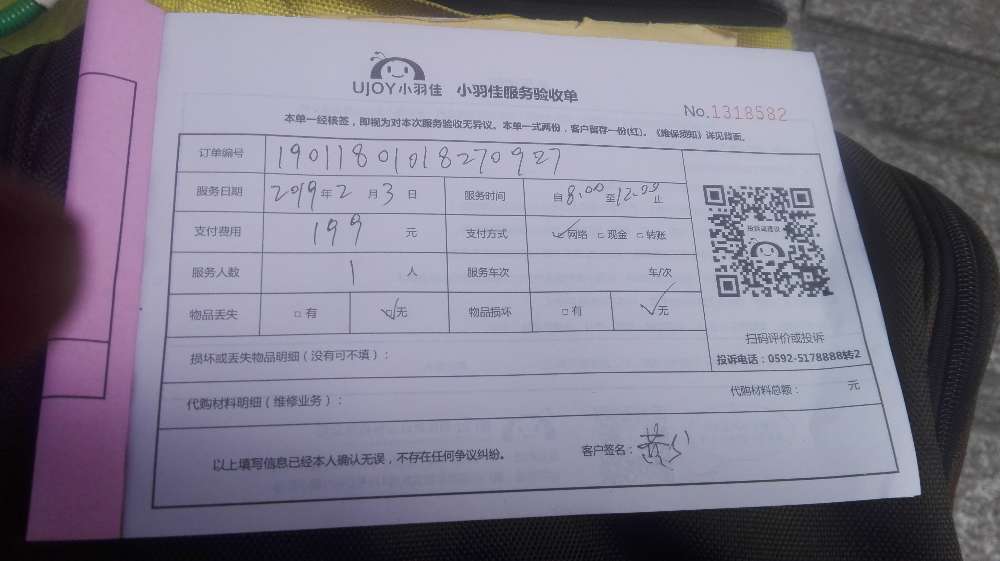 UJOY小羽佳 小羽佳服务验收单
No.1318582
本单一经核签，即视为对本次服务验收无异议。本单一式两份，客户留存一份(红)。《维保须知》详见背面。
订单编号 19011801018270927
服务日期 2019年2月3日 服务时间 自8:00至12:00止
支付费用 199元 支付方式 网络 现金 转账
服务人数 1人 服务车次 车/次
物品丢失 有 无 物品损坏 有 无
扫码评价或投诉
投诉电话：0592-5178888转2
损坏或丢失物品明细（没有可不填）：
代购材料明细（维修业务）： 代购材料总额： 元
以上填写信息已经本人确认无误，不存在任何争议纠纷。 客户签名：